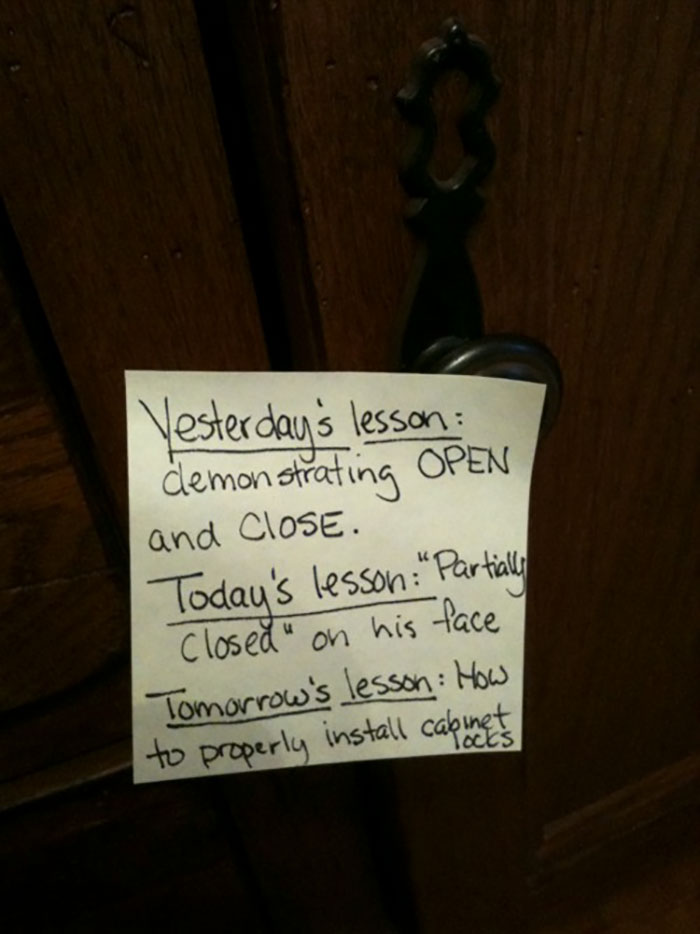 Yesterday's lesson:
demonstrating OPEN
and CLOSE.
Today's lesson: "Partially
Closed" on his face
Tomorrow's lesson: How
to properly install cabinet
locks